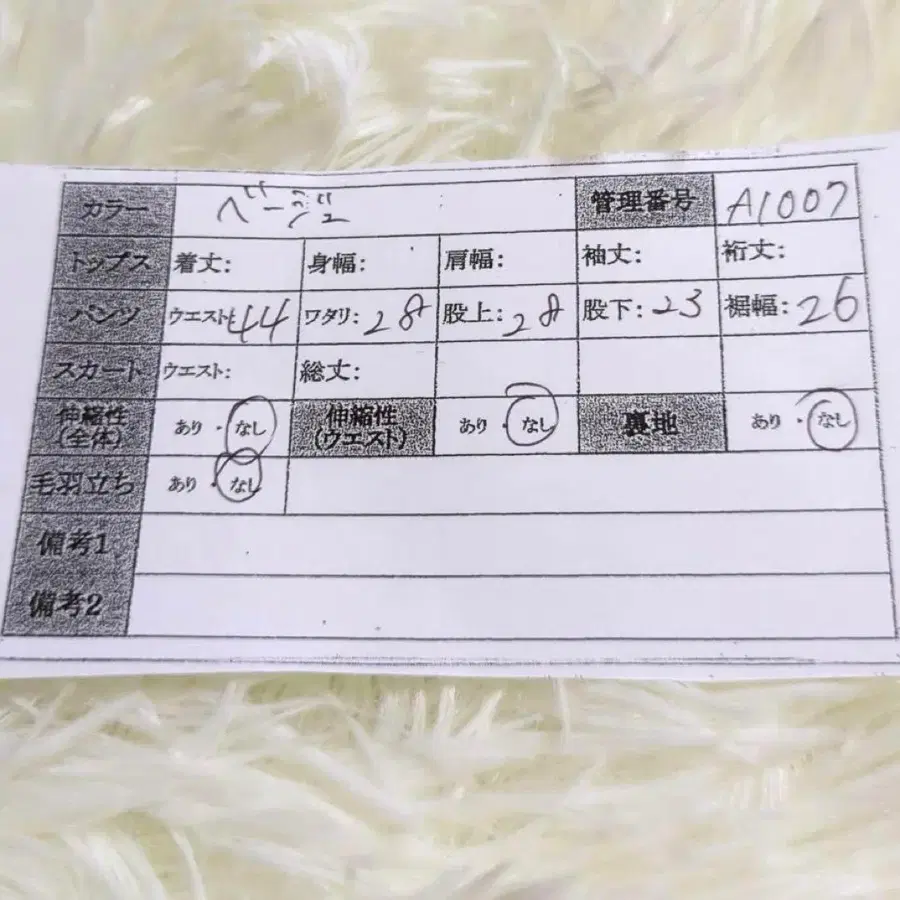 カラー ベージュ 管理番号 A1007
トップス 着丈: 身幅: 肩幅: 袖丈: 裄丈:
パンツ ウエスト: 44 ワタリ: 28 股上: 28 股下: 23 裾幅: 26
スカート ウエスト: 総丈:
伸縮性 (全体) あり・なし 伸縮性 (ウエスト) あり・なし 裏地 あり・なし
毛羽立ち あり・なし
備考1
備考2